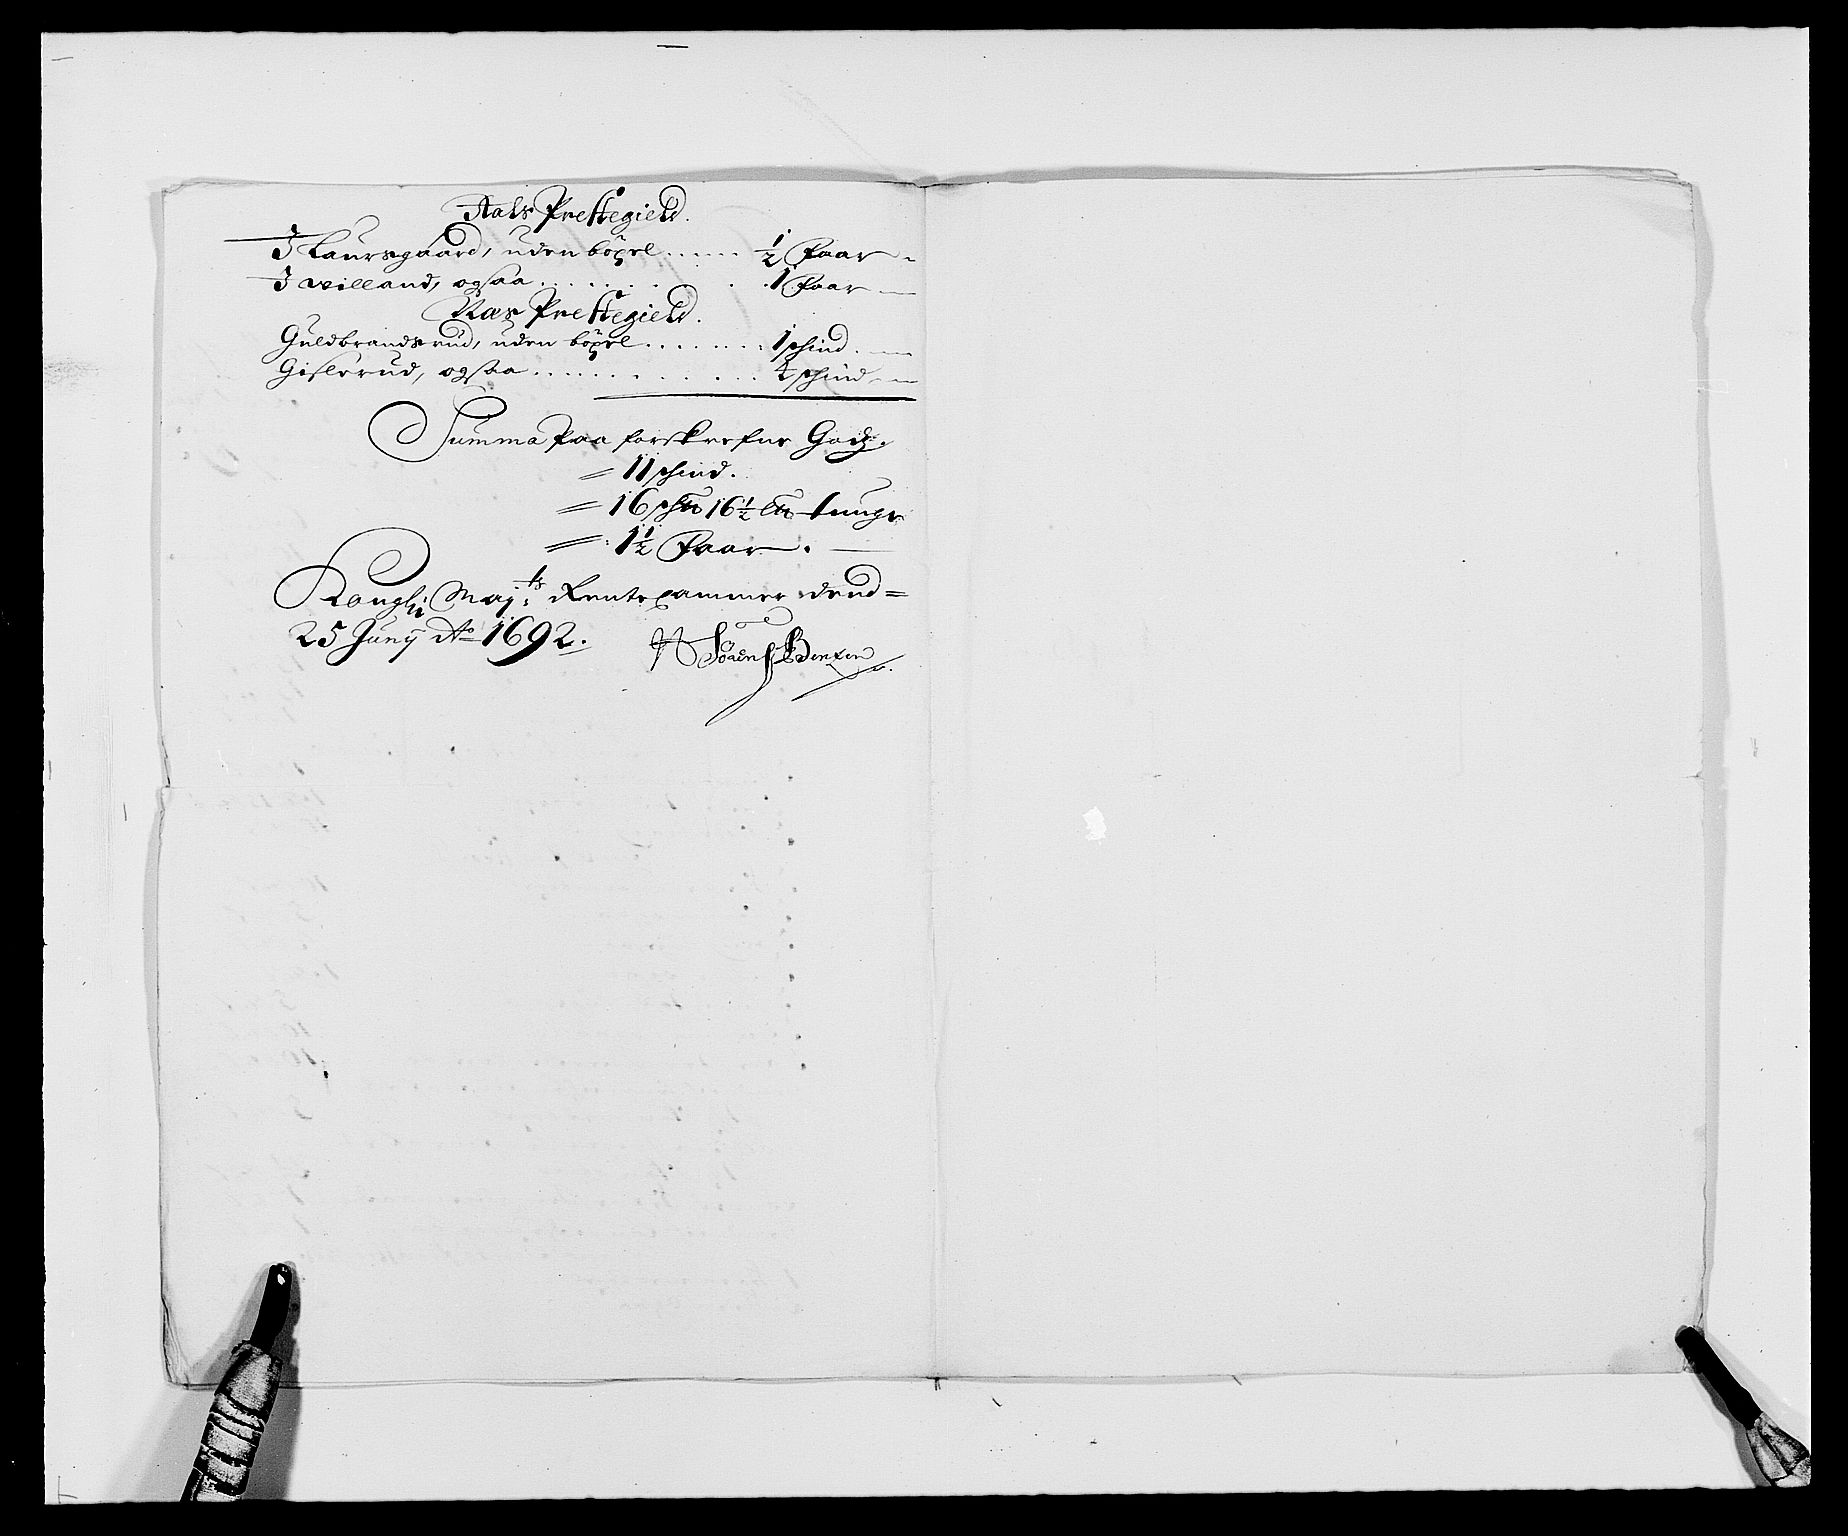 Aals Prestegield.
J Laursgaard, uden böxel ...... ½ Faar
J villand, ogsaa ....... 1 Faar
Næs Prestegield.
Guldbrandsrud, uden böxel ........ 1 schind.
Gislerud, ogsaa ........... ½ schind
Summa Paa forskrefne Godz.
= 11 schind.
= 16 sch 16½ tunge
= 1½ Faar.
Kongl: Maj:ts Rentecammer dend=
25 Junij Ao 1692.
Sören